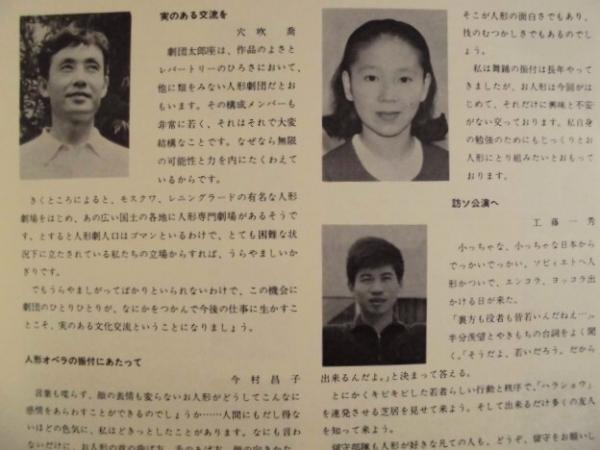 実のある交流を
穴吹 喬
劇団太郎座は、作品のよさと
レパートリーのひろさにおいて、
他に類をみない人形劇団だとお
もいます。その構成メンバーも
非常に若く、それはそれで大変
結構なことです。なぜなら無限
の可能性と力を内にたくわえて
いるからです。
きくところによると、モスクワ、レニングラードの有名な人形
劇場をはじめ、あの広い国土の各地に人形専門劇場があるそうで
す。とすると人形劇人口はゴマンといるわけで、とても困難な状
況下に立たされている私たちの立場からすれば、うらやましいか
ぎりです。
でもうらやましがってばかりといられないわけで、この機会に
劇団のひとりひとりが、なにかをつかんで今後の仕事に生かすこ
とこそ、実のある文化交流ということになりましょう。
人形オペラの振付にあたって
今村昌子
言葉も喋らず、顔の表情も変らないお人形がどうしてこんなに
感情をあらわすことができるのでしょうか……人間にもだし得な
いほどの色気に、私はどきっとしたことがあります。なにも言わ
ないだけに、お人形の首の曲げ方、手のあげ方、顔の向きかた、
そこが人形の面白さでもあり、
技のむつかしさでもあるのでし
ょう。
私は舞踊の振付は長年やって
きましたが、お人形は今回がは
じめて、それだけに興味と不安
がない交っております。私自身
の勉強のためにもじっくりとお
人形にとり組みたいとおもって
おります。
訪ソ公演へ
工藤一秀
小っちゃな、小っちゃな日本から
でっかいでっかい、ソビィエトへ人
形かついで、エンコラ、ヨッコラ出
かける日が来た。
「裏方も役者も皆若いんだねえ…」
半分羨望とやきもちの台詞をよく聞
く。「そうだよ、若いだろう。だから
出来るんだよ。」と決まって答える。
とにかくキビキビした若者らしい行動と秩序で、「ハラショウ」
を連発させる芝居を見せて来よう。そして出来るだけ多くの友人
を知って来よう。
留守部隊も人形が好きな元ての人も、どうぞ、留守をお願いし